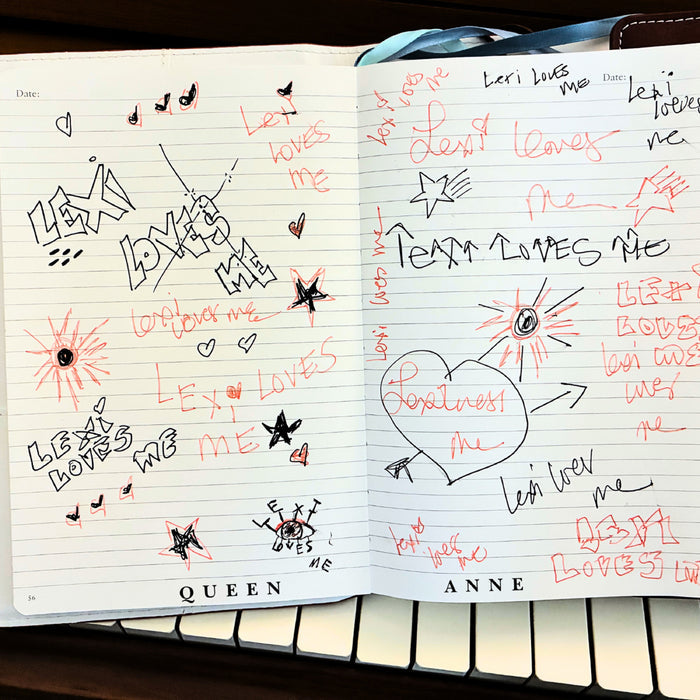 Date:
Lexi
LOVES
ME
LEXI
LOVES
ME
Lexi
loves me
LEXI LOVES
ME
LEXI
LOVES ME
LEXI
LOVES
ME
56
QUEEN
Lexi loves me
Lexi LOVES
ME
Date:
Lexi
loves
me
Lexi loves
me
LEXI LOVES ME
Lexi loves me
LEXI
LOVES
lexi
me
me
Lexi lover
me
lexi
loves
me
LEXI
LOVES
ANNE